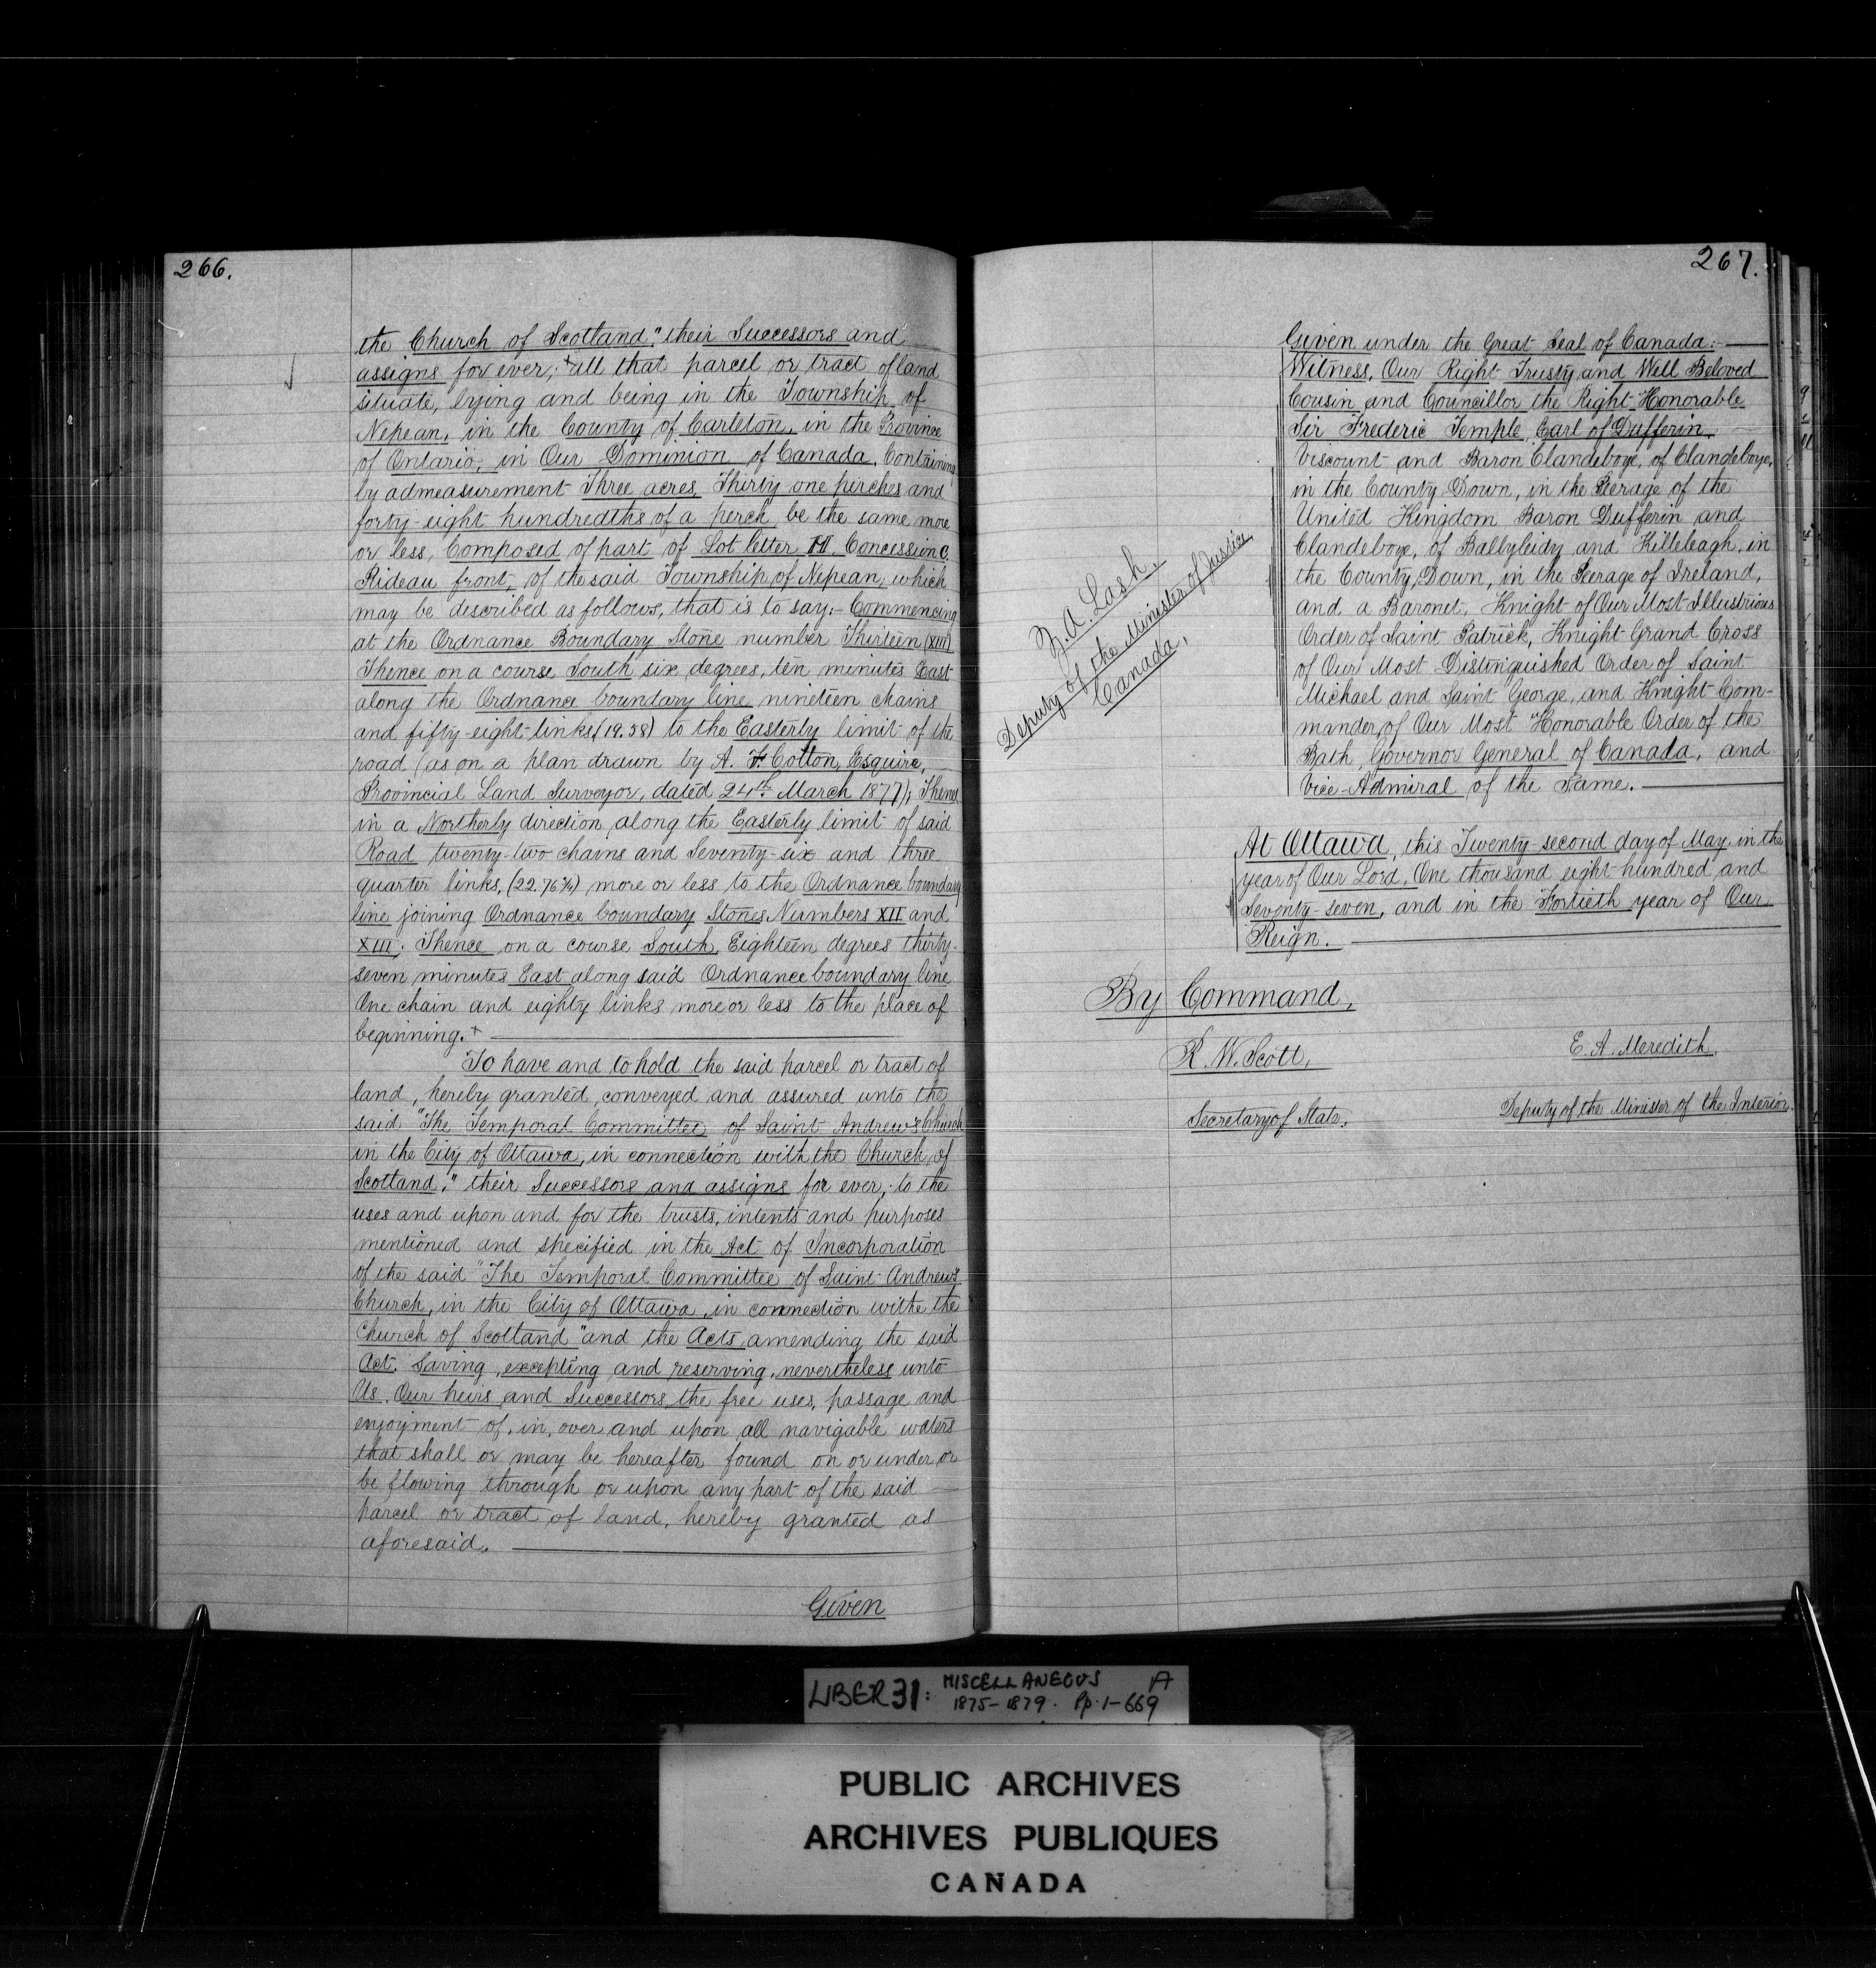 266.
the Church of Scotland." their Successors and
assigns for ever; + all that parcel or tract of land
situate, lying and being in the Township of
Nepean, in the County of Carleton, in the Province
of Ontario, in Our Dominion of Canada, Containing
by admeasurement Three acres, Thirty one perches and
forty-eight hundredths of a perch be the same more
or less, Composed of part of Lot letter Concession C.
Rideau front, of the said Township of Nepean, which
may be described as follows, that is to say:- Commencing
at the Ordnance Boundary Stone number Thirteen (XIII)
Thence on a course South six degrees, ten minutes East
along the Ordnance boundary line nineteen chains
and fifty-eight links (19.58) to the Easterly limit of the
road (as on a plan drawn by A. F. Cotton, Esquire,
Provincial Land Surveyor, dated 24th March 1877); Thence
in a Northerly direction along the Easterly limit of said
Road twenty-two chains and Seventy-six and three
quarter links, (22.76¾) more or less to the Ordnance boundary
line joining Ordnance boundary Stones Numbers XII and
XIII; Thence on a course South, Eighteen degrees thirty-
seven minutes East along said Ordnance boundary line
One chain and eighty links more or less to the place of
beginning. +
To have and to hold the said parcel or tract of
land, hereby granted, conveyed and assured unto the
said "The Temporal Committee of Saint Andrew's Church
in the City of Ottawa, in connection with the Church of
Scotland," their Successors and assigns for ever, to the
uses and upon and for the trusts, intents and purposes
mentioned and specified in the Act of Incorporation
of the said "The Temporal Committee of Saint Andrew's
Church, in the City of Ottawa, in connection withe the
Church of Scotland" and the Acts amending the said
Act. Saving, excepting and reserving, nevertheless unto
Us, Our heirs and Successors, the free uses, passage and
enjoyment of, in, over and upon all navigable waters
that shall or may be hereafter found on or under or
be flowing through or upon any part of the said
parcel or tract of land, hereby granted as
aforesaid.
Given
267.
Given under the Great Seal of Canada:-
Witness, Our Right Trusty and Well Beloved
Cousin and Councillor the Right Honorable
Sir Frederic Temple, Earl of Dufferin,
Viscount and Baron Clandeboye, of Clandeboye,
in the County Down, in the Peerage of the
United Kingdom Baron Dufferin and
Clandeboye, of Ballyleidy and Killeleagh, in
the County Down, in the Peerage of Ireland,
and a Baronet, Knight of Our Most Illustrious
Order of Saint Patrick, Knight Grand Cross
of Our Most Distinguished Order of Saint
Michael and Saint George, and Knight Com-
mander of Our Most Honorable Order of the
Bath, Governor General of Canada, and
Vice-Admiral of the Same.
Z. A. Lash,
Deputy of the Minister of Justice
Canada.
At Ottawa, this Twenty-second day of May in the
year of Our Lord, One thousand eight hundred and
Seventy-seven, and in the Fortieth year of Our
Reign.
By Command,
R. W. Scott,
Secretary of State.
E. A. Meredith,
Deputy of the Minister of the Interior.
LIBER 31: MISCELLANEOUS A
1875-1879. Pp. 1-669
PUBLIC ARCHIVES
ARCHIVES PUBLIQUES
CANADA